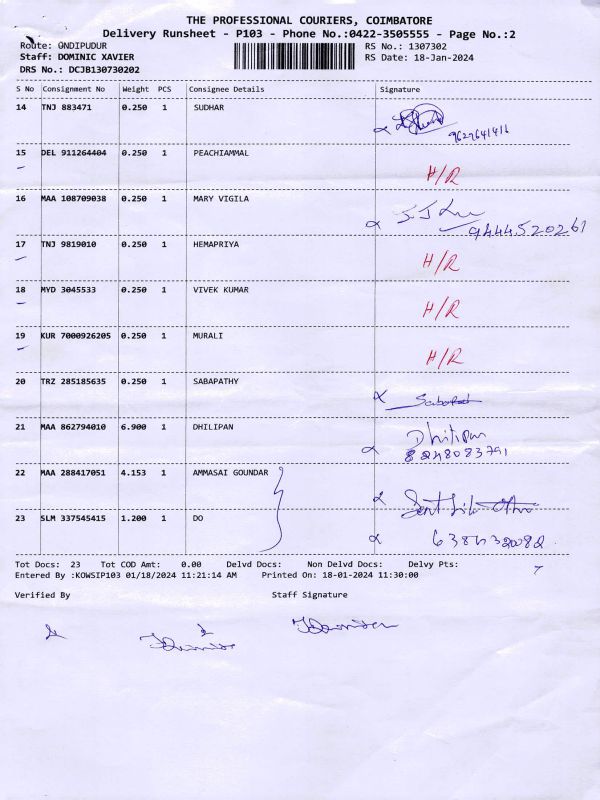 THE PROFESSIONAL COURIERS, COIMBATORE
Delivery Runsheet - P103 - Phone No.:0422-3505555 - Page No.:2
Route: ONDIPUDUR
RS No.: 1307302
Staff: DOMINIC XAVIER
RS Date: 18-Jan-2024
DRS No.: DCJB130730202
S No Consignment No Weight PCS Consignee Details Signature
14 TNJ 883471 0.250 1 SUDHAR
15 DEL 911264404 0.250 1 PEACHIAMMAL H/R
16 MAA 108709038 0.250 1 MARY VIGILA
9444520261
17 TNJ 9819010 0.250 1 HEMAPRIYA H/R
18 MYD 3045533 0.250 1 VIVEK KUMAR H/R
19 KUR 7000926205 0.250 1 MURALI H/R
20 TRZ 285185635 0.250 1 SABAPATHY
21 MAA 862794010 6.900 1 DHILIPAN Dhilipan
8248083791
22 MAA 288417051 4.153 1 AMMASAI GOUNDAR
23 SLM 337545415 1.200 1 DO
Tot Docs: 23 Tot COD Amt: 0.00 Delvd Docs: Non Delvd Docs: Delvy Pts:
Entered By :KOWSIP103 01/18/2024 11:21:14 AM Printed On: 18-01-2024 11:30:00
Verified By Staff Signature